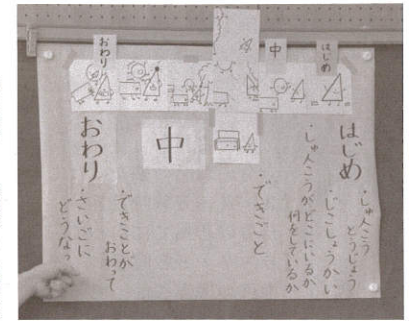 はじめ
中
おわり
はじめ
・しゅ人こう
とうじょう
・じこしょうかい
・しゅ人こうがどこにいるか
何をしているか
・できごと
中
おわり
・できことが
おわって
・さいごに
どうなっ